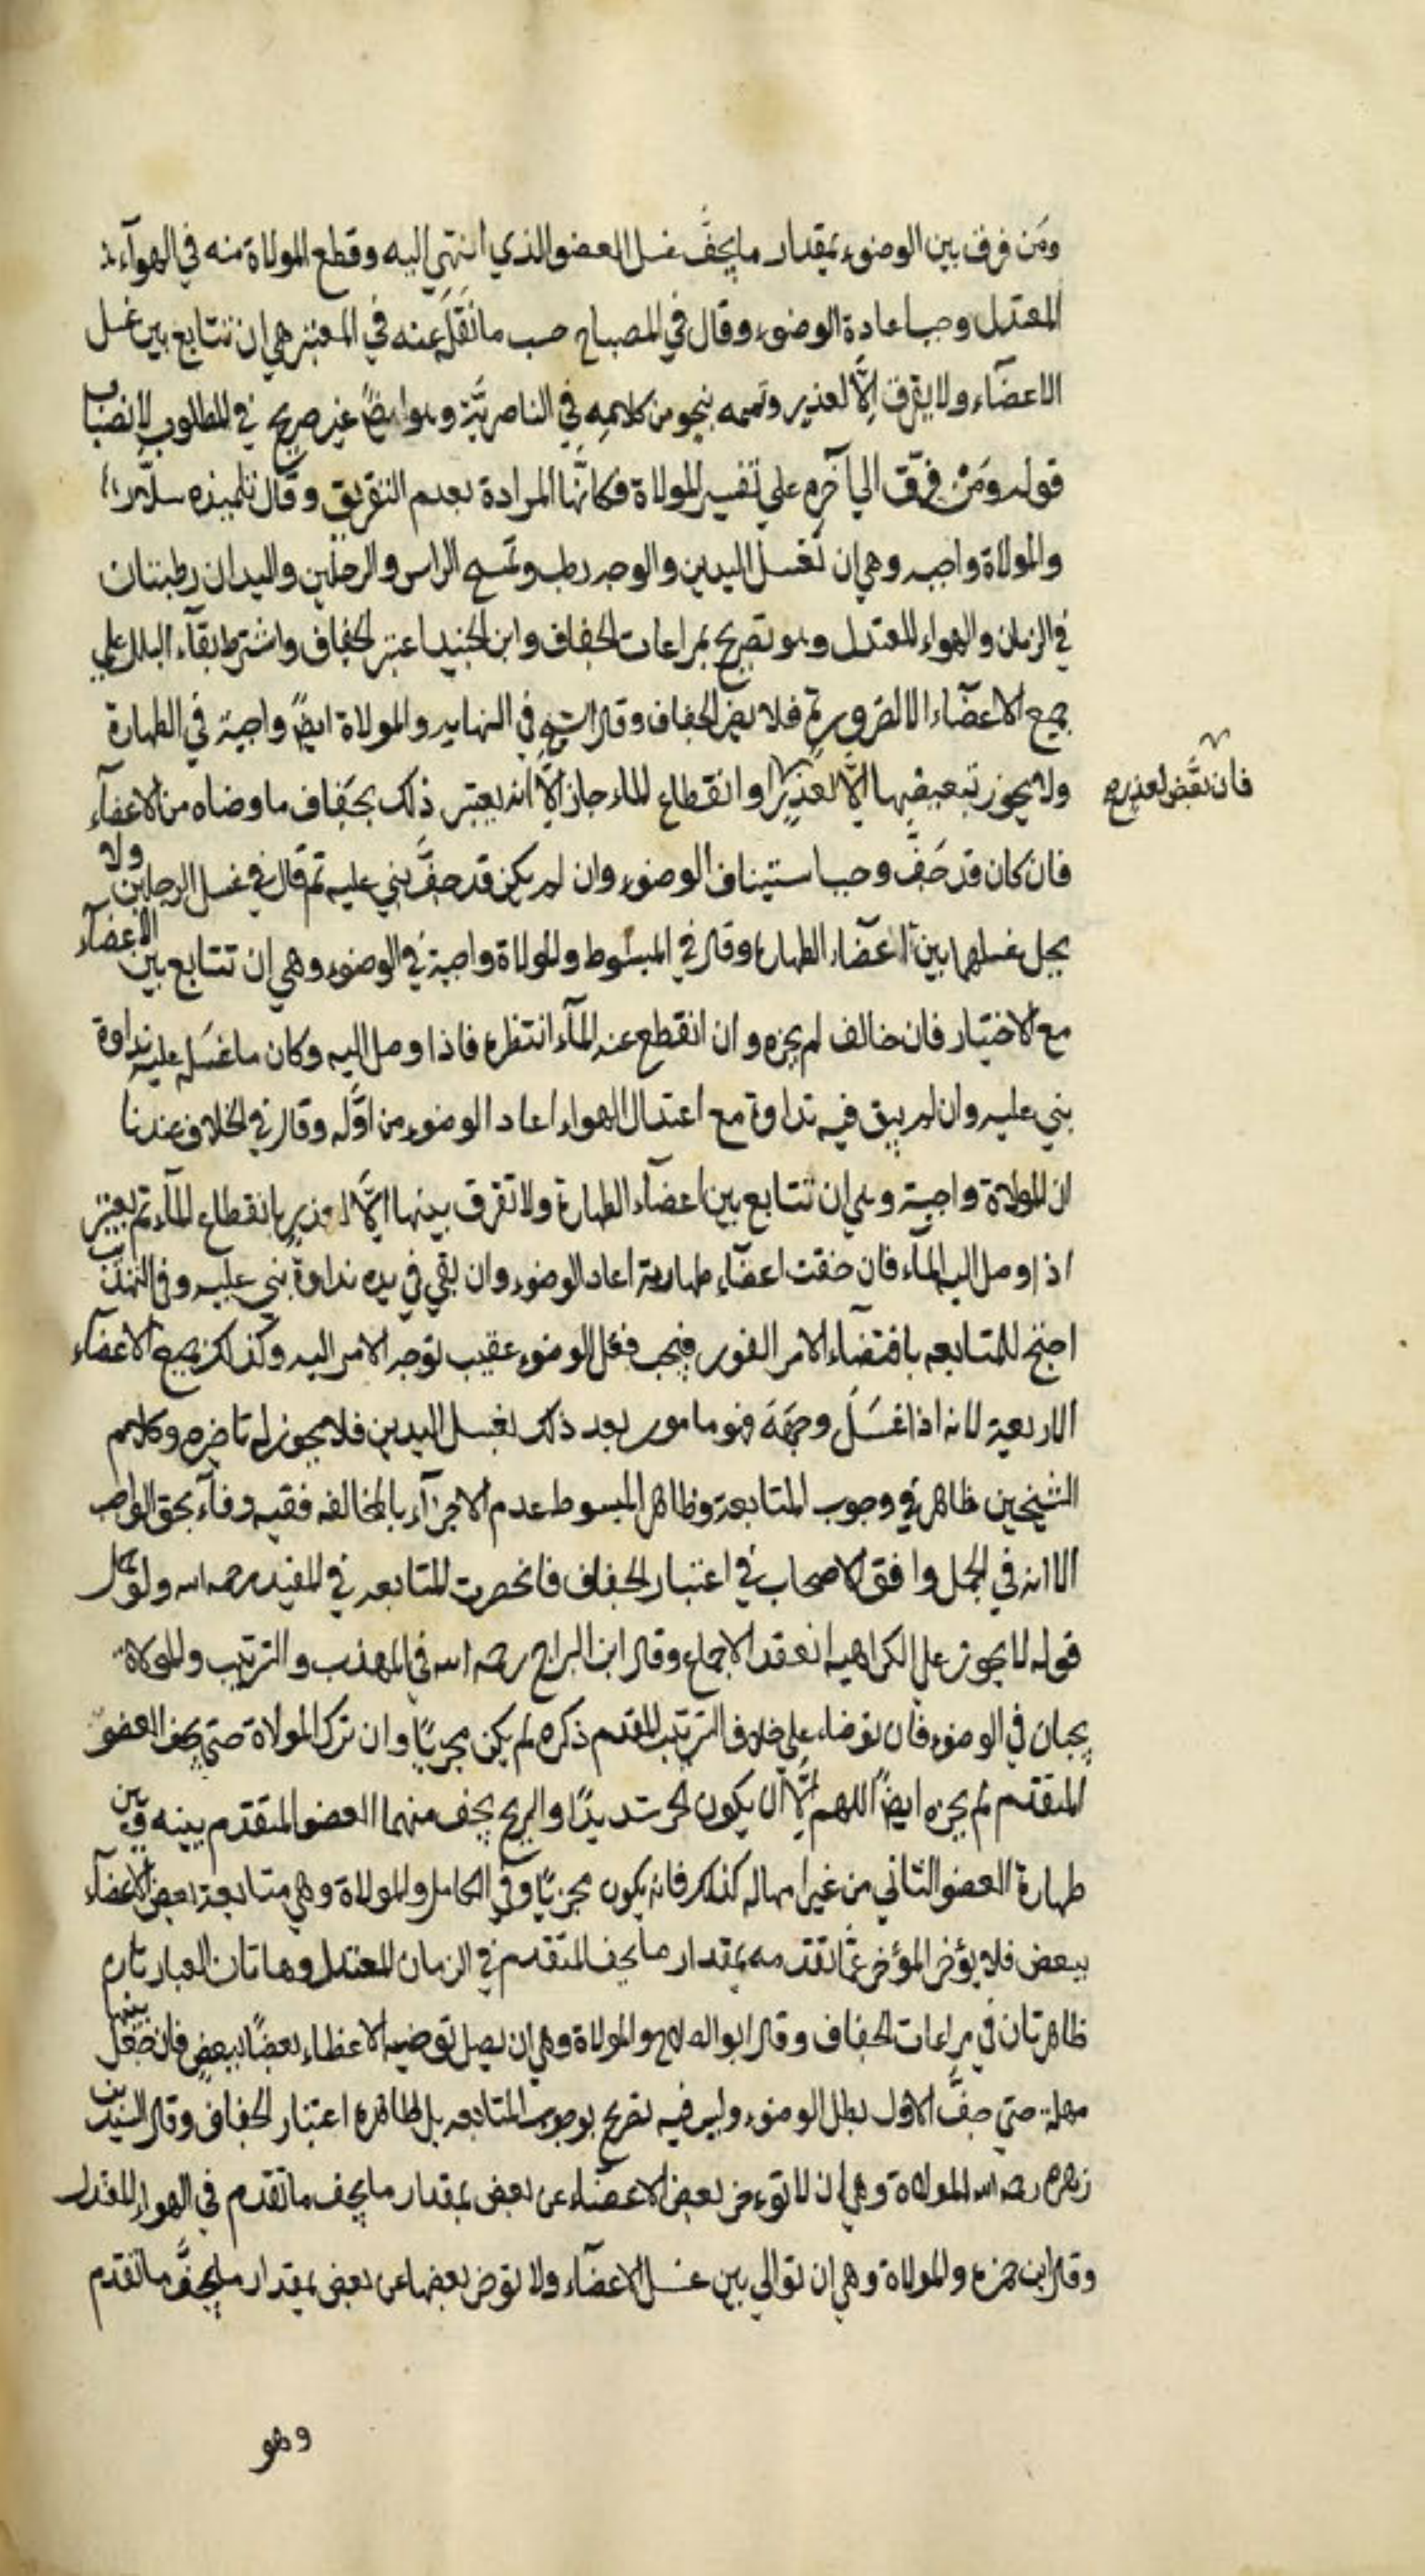 ومَن فرق بين الوضوء بمقدار ما يجفّ غسل العضو الذي انتهى اليه وقطع المولاة منه في الهوآء
المعتدل وجب اعادة الوضوء وقال في المصباح حسب ما نَقَلَ عنه في المعتبر هي ان تتابع بين غسل
الاعضآء ولا يفرق الّا لعذر وتممه بنحو من كلامه في الناصريّة وهو ايضً غير صريح في المطلوب لانصباب
قوله ومَنْ فرّق الي آخره علي تفسير الموالاة فكانّها المرادة بعدم التفريق وقال تلميذه سلّار
والمولاة واجبه وهي ان تغسل اليدين والوجه رطب وتمسح الراس والرجلين واليدان رطبتان
في الزمان والهواء المعتدل وهو تصريح بمراعات الجفاف وابن الجنيد اعتبر الجفاف واشترط بقآء البلل علي
جميع الاعضآء الا لضرورة فلا يضر الجفاف وقال الشيخ في النهايه والمولاة ايضً واجبة في الطهارة
ولا يجوز تبعيضها الّا لعذرٍ او انقطاع الماء جاز الّا انه يعتبر ذلك بجَفاف ما وضاه من الاعضآء
فان بعّض لعذر صح
فان كان قد جَفّ وجب استيناف الوضوء وان لم يكن قد جفّ بني عليه ثم قال في غسل الرجلين ولا
يجل غسلهما بين اعضآء الطهارة وقال في المبسُوط والموالاة واجبة في الوضوء وهي ان تتابع بين الاعضآء
مع الاختيار فان خالف لم يجزه وان انقطع عنه المآء انتظره فاذا وصل اليه وكان ما غسَله عليه نداوة
بني عليه وان لم يبق فيه نداوة مع اعتدال الهواء اعاد الوضوء من اوّله وقال في الخلاف عندنا
ان المولاة واجبة وهي ان تتابع بين اعضآء الطهارة ولا تفرق بينها الّا لعذر بانقطاع المآء ثم يعتبر
اذا وصل اليه المآء فان جفت اعضآء طهارته اعاد الوضوء وان بقي في يده نداوة بني عليه وفي التهذيب
احتج للمتابعه باقتضاء الامر الفور فيجب فعل الوضوء عقيب توجه الامر اليه وكذلك جميع الاعضآء
الاربعة لانه اذا غَسَلَ وجهَهَ فهو مامور بعد ذلك بغسل اليدين فلا يجوز له تاخيره وكلام
الشيخين ظاهر في وجوب المتابعة وظاهر المبسوط عدم الاجزآء بالمخالفه ففيه وفآء بحق الواجب
الا انه في الجمل وافق الاصحاب في اعتبار الجفاف فانحصرت المتابعه في المفيد رحمه الله ولو حمل
قوله لا يجوز علي الكراهيه انعقد الاجماع وقال ابن البراج رحمه الله في المهذب والترتيب والموالاة
يجبان في الوضوء فان توضاء علي خلاف الترتيب المقدم ذكره لم يكن مجزيًا وان ترك المولاة حتي يجف العضو
المتقدم لم يجزه ايضًا اللهم الّا ان يكون الحر شديدًا والريح يجف منهما العضو المتقدم بينه وبين
طهارة العضو الثاني من غير امهاله كذلك فانه يكون مجزيًا وفي الكامل والمولاة وهي متابعة بعض الاعضآء
ببعض فلا يؤخر المؤخر عمّا تقدمه بمقدار ما يجف المتقدم في الزمان المعتدل وهاتان العبارتان
ظاهرتان في مراعات الجفاف وقال ابو الصلاح والمولاة وهي ان يصل توضيه الاعظاء بعضًا ببعض فان جعل بينها
مهلة حتي جفّ الاول بطل الوضوء وليس فيه تصريح بوجوب المتابعه بل ظاهره اعتبار الجفاف وقال السيد بن
زهره رحمه الله المولاة وهي ان لا تؤخر بعض الاعضاء عن بعض بمقدار ما يجف ما تقدم في الهواء المقدار
وقال ابن حمزه والمولاة وهي ان توالي بين غسل الاعضآء ولا تؤخر بعضها عن بعض بمقدار ما يجفّ ما تقدم
وهو